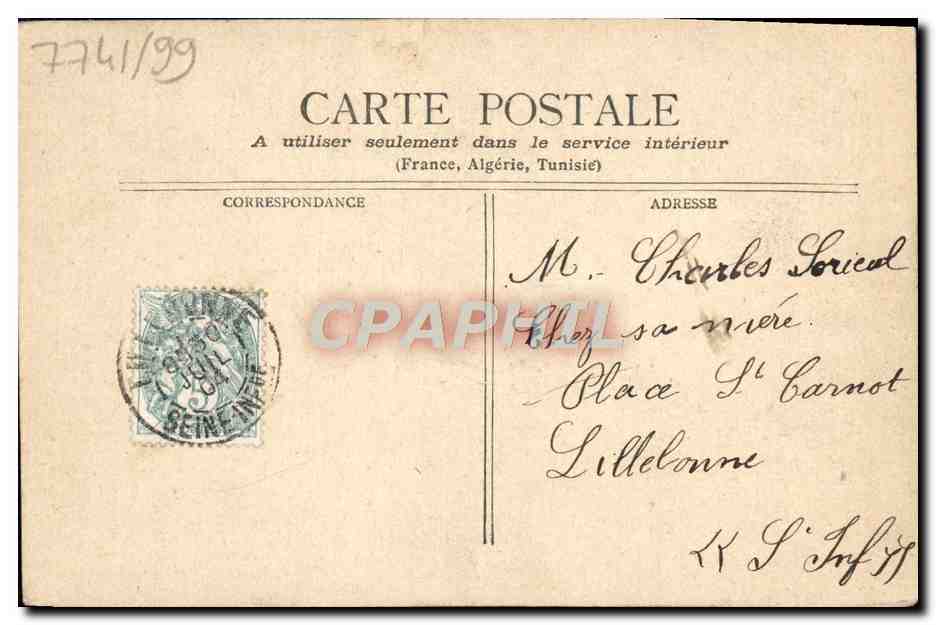 7741/99
CARTE POSTALE
A utiliser seulement dans le service intérieur
(France, Algérie, Tunisie)
CORRESPONDANCE
ADRESSE
M. Charles Sorieul
Chez sa mère.
Place St Carnot
Lillebonne
LILLEBONNE
JUIL
04
SEINE-INFRE
5
CPAPHIL
« S. Inf »